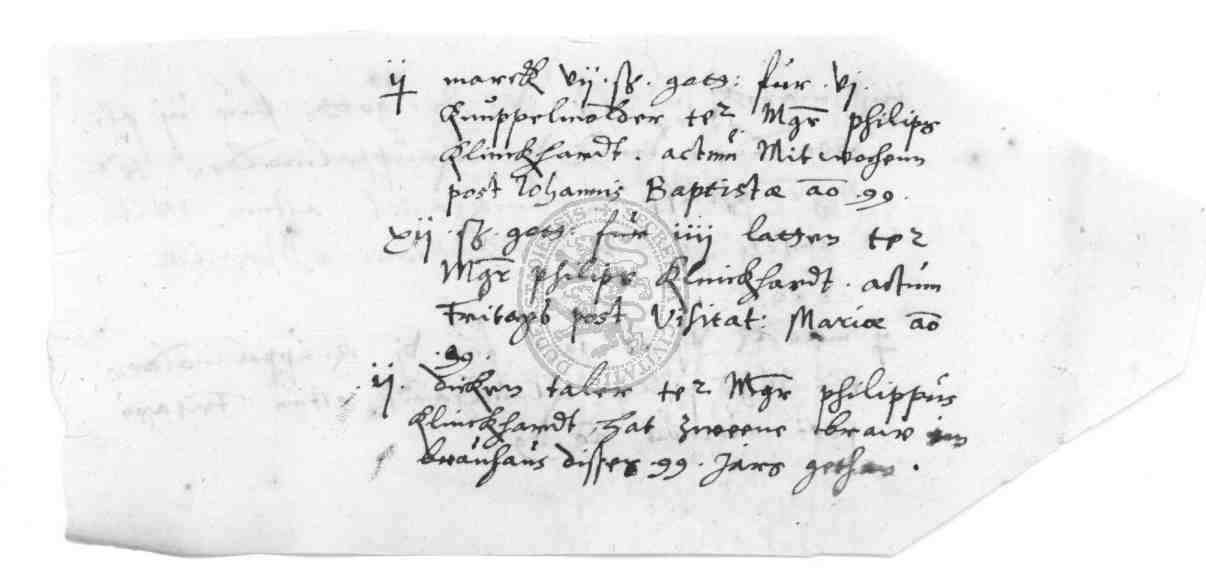 ij marck vij. ß. gotz: für .vj.
Knüppelmolder te2 Mgr philips
Klinckhardt. actum Mitwochenn
post Johannis Baptistæ ao 99.
xij. ß. gotz. für iiij latten te2
Mgr philips Klinckhardt. actum
Fritags post Visitat: Mariæ ao
.99.
.ij. dicken taler te2 Mgr philippus
Klinckhardt hat zweene braw im
brauhaus disses .99. Jars gethan.